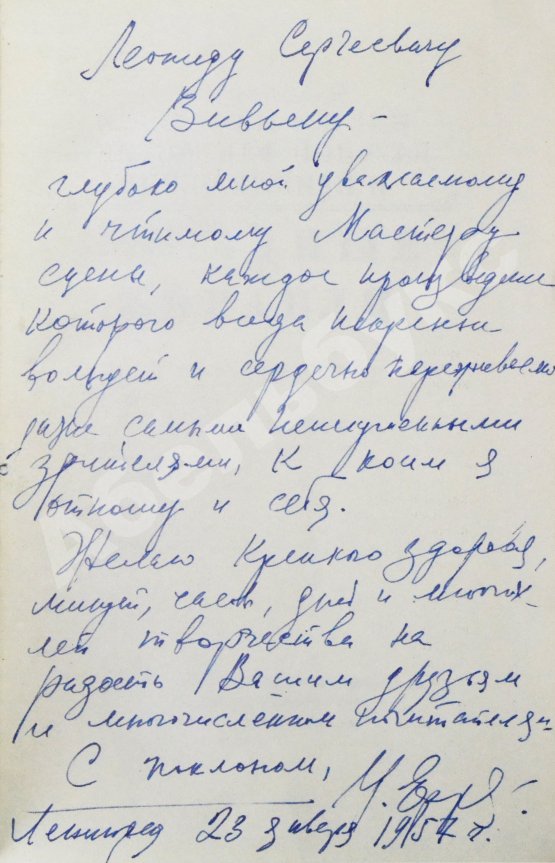 Леониду Сергеевичу
Вивьену –
глубоко мной уважаемому
и чтимому Мастеру
сцены, каждое произведение
которого всегда искренни
волнует и сердечно переживаемо
даже самыми неискушенными
зрителями, к коим я
отношу и себя.
Желаю крепкого здоровья,
минут, часов, дней и многих
лет творчества на
радость Вашим друзьям
и многочисленным почитателям.
С поклоном,
Ленинград 23 января 1957 г.